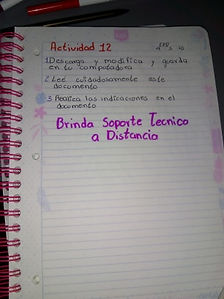 Actividad 12
1. Descarga y modifica y guarda
en tu computadora
2. Lee cuidadosamente este
documento
3. Realiza las indicaciones en el
documento
Brinda Soporte Tecnico
a Distancia